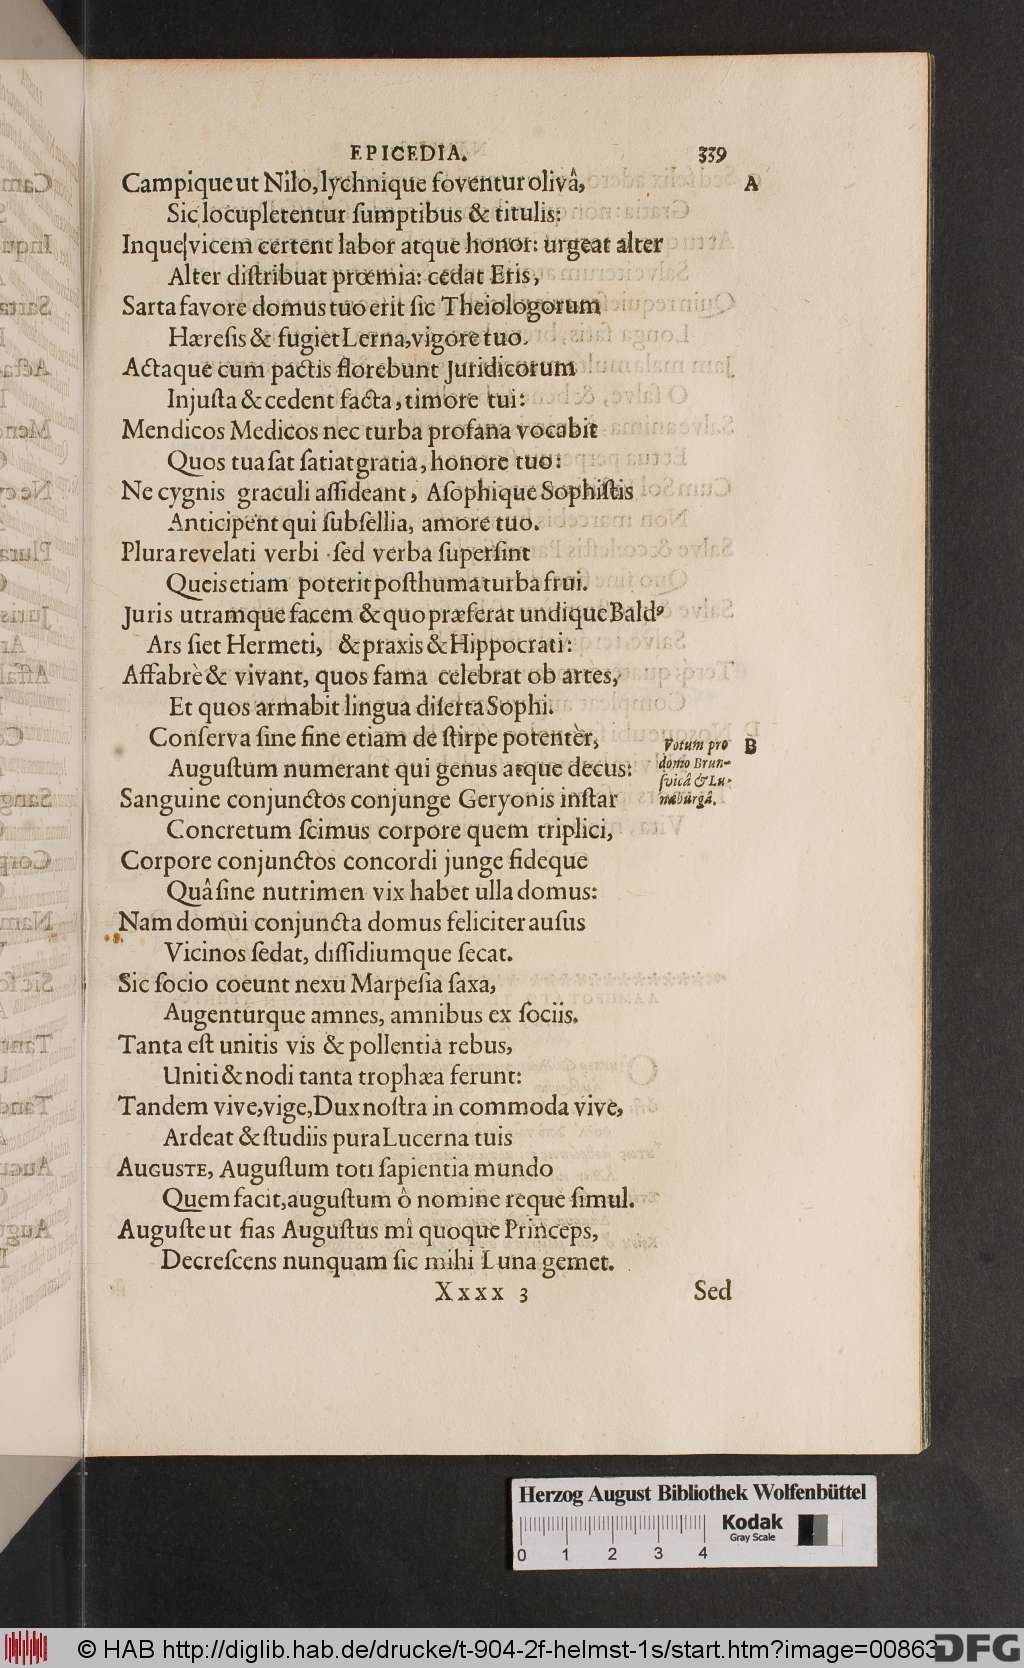 EPICEDIA. 339
Campique ut Nilo, lychnique foventur olivâ, A
Sic locupletentur ſumptibus & titulis:
Inque vicem certent labor atque honor: urgeat alter
Alter diſtribuat prœmia: cedat Eris,
Sarta favore domus tuo erit ſic Theiologorum
Hæreſis & fugiet Lerna, vigore tuo.
Actaque cum pactis florebunt Juridicorum
Injuſta & cedent facta, timore tui:
Mendicos Medicos nec turba profana vocabit
Quos tua ſat ſatiat gratia, honore tuo:
Ne cygnis graculi aſſideant, Aſophique Sophiſtis
Anticipent qui ſubſellia, amore tuo.
Plura revelati verbi ſed verba ſuperſint
Queis etiam poterit poſthuma turba frui.
Juris utramque facem & quo præferat undique Baldꝰ
Ars ſiet Hermeti, & praxis & Hippocrati:
Affabrè & vivant, quos fama celebrat ob artes,
Et quos armabit lingua diſerta Sophi.
Conſerva ſine fine etiam de ſtirpe potentèr,
Auguſtum numerant qui genus atque decus:
Votum pro B
domo Brun-
ſvicâ & Lu-
næburgâ.
Sanguine conjunctos conjunge Geryonis inſtar
Concretum ſcimus corpore quem triplici,
Corpore conjunctos concordi junge fideque
Quâ ſine nutrimen vix habet ulla domus:
Nam domui conjuncta domus feliciter auſus
Vicinos ſedat, diſſidiumque ſecat.
Sic ſocio coeunt nexu Marpeſia ſaxa,
Augenturque amnes, amnibus ex ſociis.
Tanta eſt unitis vis & pollentia rebus,
Uniti & nodi tanta trophæa ferunt:
Tandem vive, vige, Dux noſtra in commoda vive,
Ardeat & ſtudiis pura Lucerna tuis
AUGUSTE, Auguſtum toti ſapientia mundo
Quem facit, auguſtum ô nomine reque ſimul.
Auguſte ut fias Auguſtus mî quoque Princeps,
Decreſcens nunquam ſic mihi Luna gemet.
Xxxx 3 Sed
Herzog August Bibliothek Wolfenbüttel
Kodak
Gray Scale
0 1 2 3 4
© HAB http://diglib.hab.de/drucke/t-904-2f-helmst-1s/start.htm?image=00863
DFG